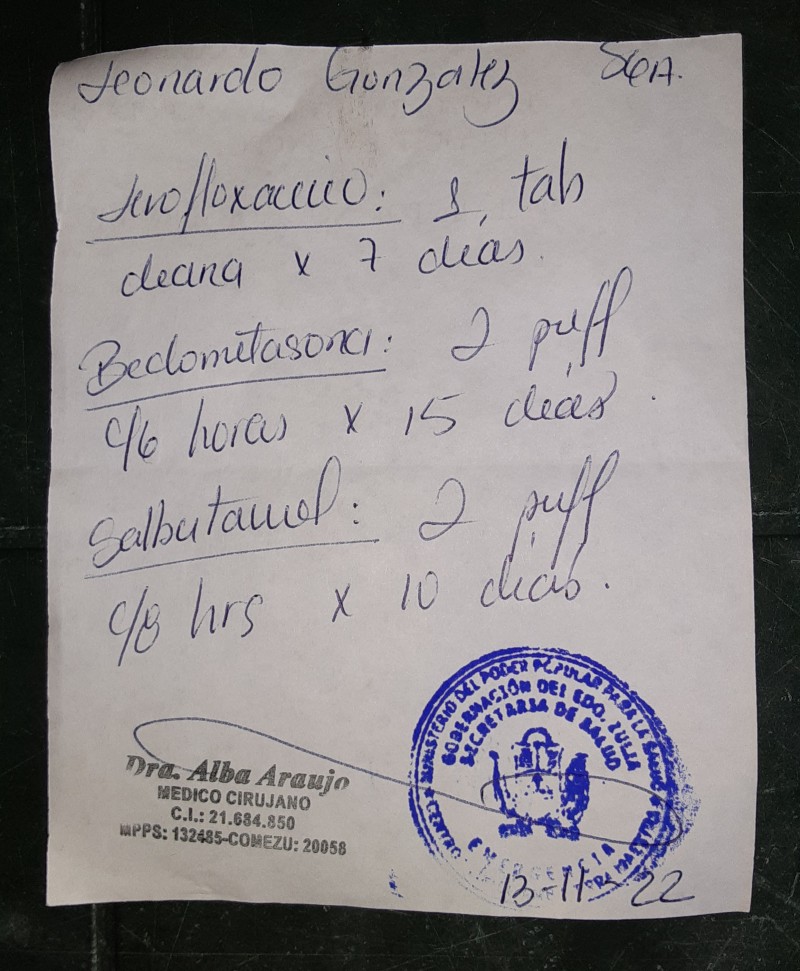 Leonardo Gonzalez 56A.
Levofloxacino: 1 tab
diaria x 7 días.
Beclometasona: 2 puff
c/6 horas x 15 días.
Salbutamol: 2 puff
c/8 hrs x 10 días.
Dra. Alba Araujo
MEDICO CIRUJANO
C.I.: 21.684.850
MPPS: 132485-COMEZU: 20058
MINISTERIO DEL PODER POPULAR PARA LA SALUD
GOBERNACIÓN DEL EDO. ZULIA
SECRETARIA DE SALUD
EMERGENCIA
13-11-22